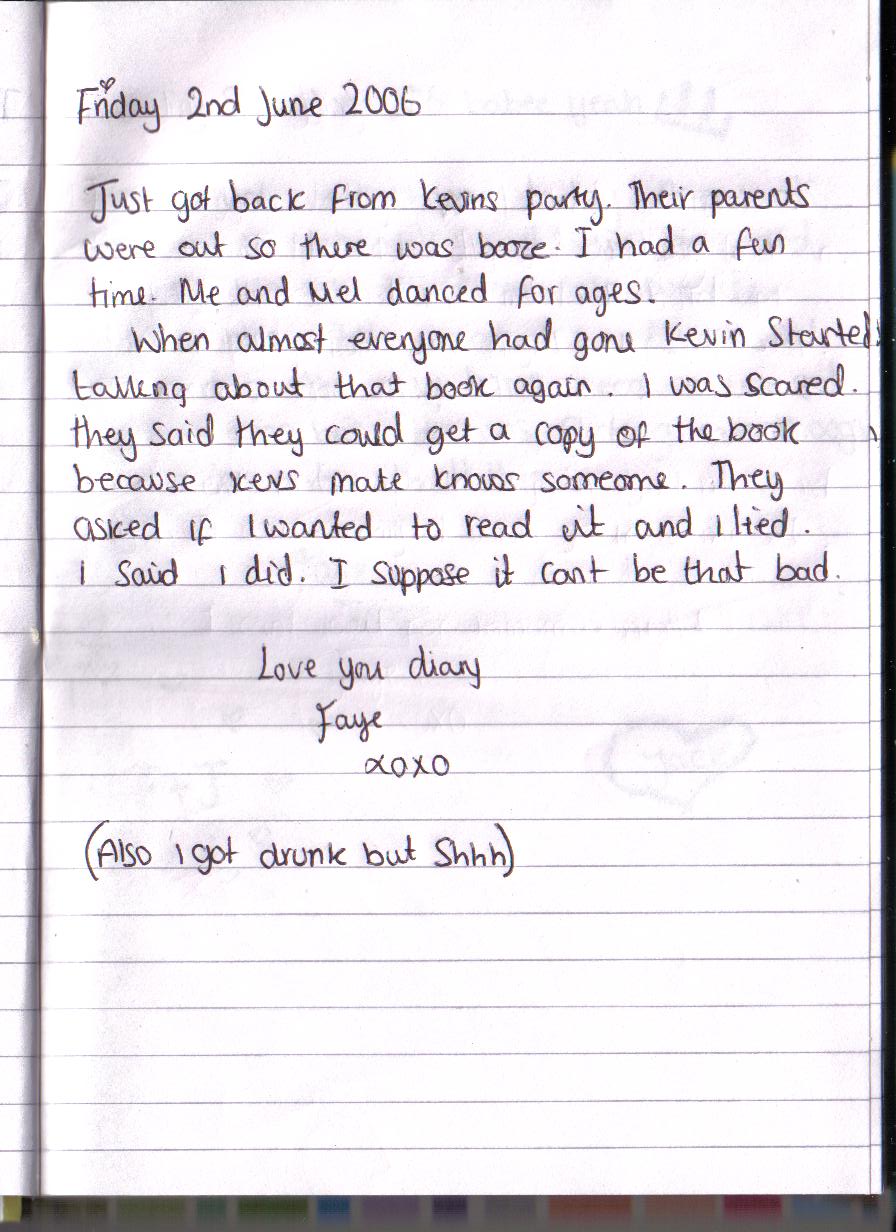 Friday 2nd June 2006
Just got back from Kevins party. Their parents
were out so there was booze. I had a fun
time. Me and Mel danced for ages.
When almost everyone had gone Kevin Started
talking about that book again. I was scared.
they said they could get a copy of the book
because kevs mate knows someone. They
asked if I wanted to read it and I lied.
I Said I did. I suppose it cant be that bad.
Love you diary
Faye
xoxo
(Also I got drunk but Shhh)